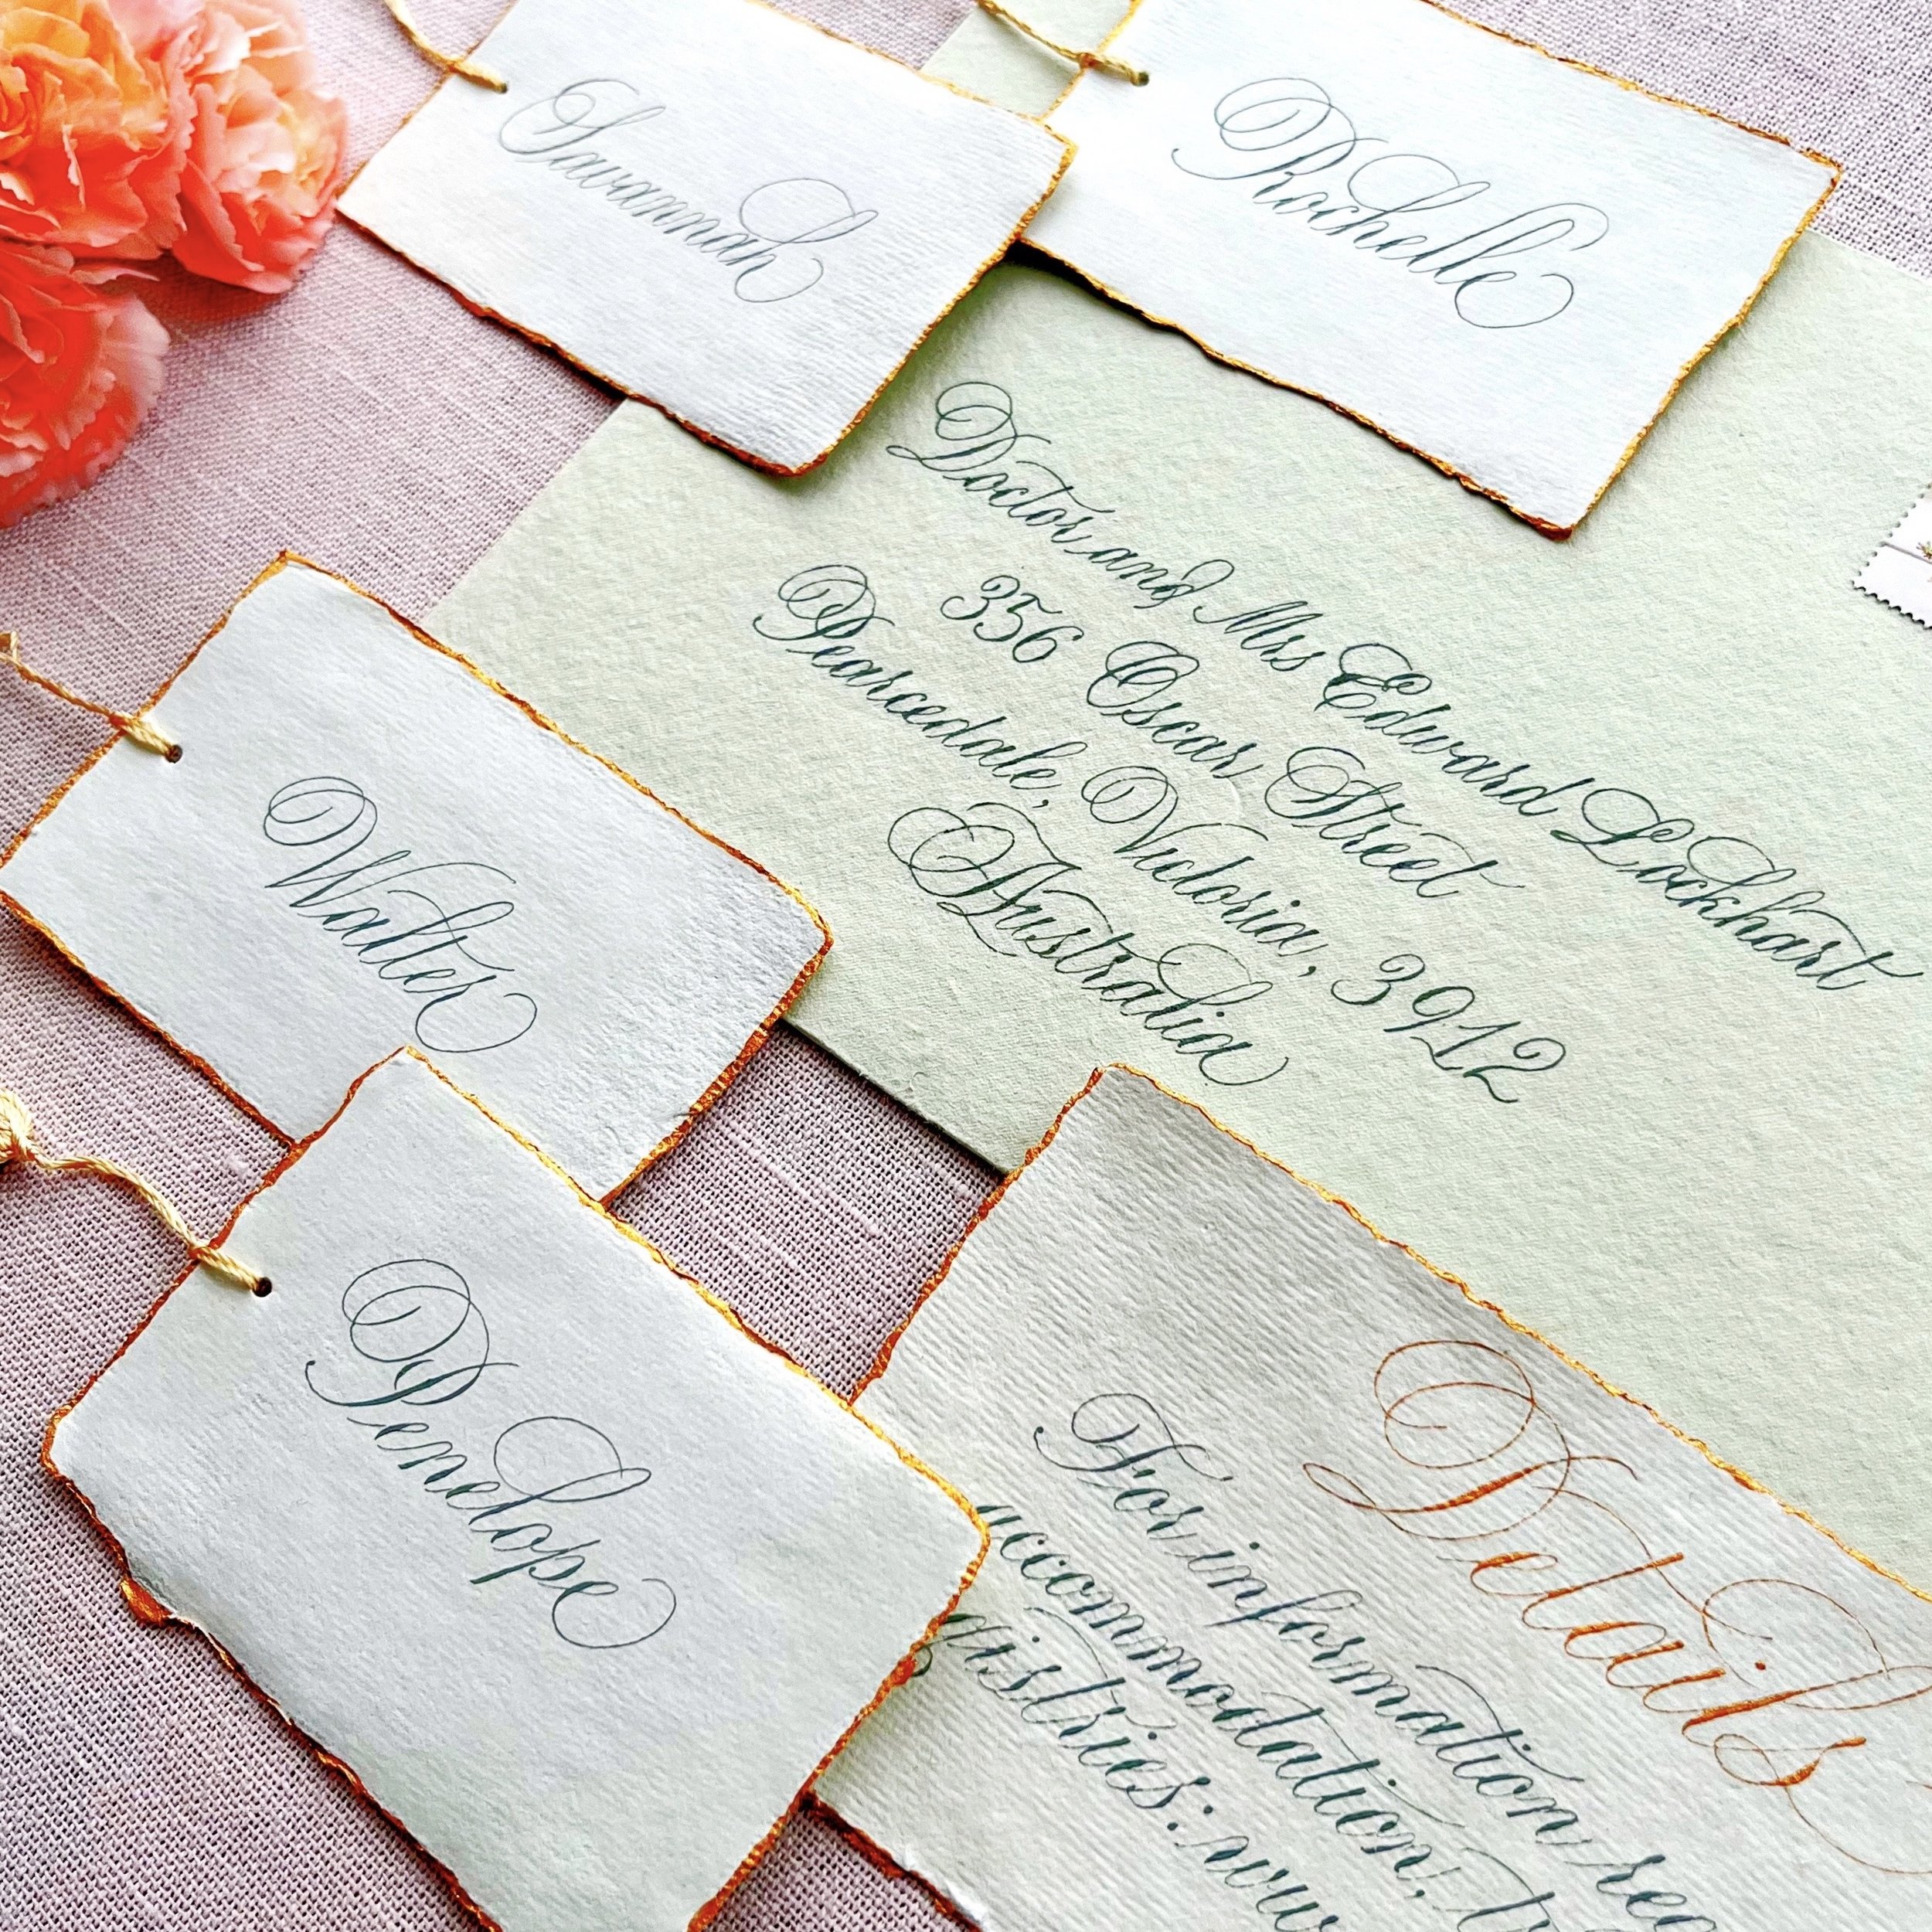 Savannah
Rochelle
Doctor and Mrs Edward Lockhart
356 Oscar Street
Pearcedale, Victoria, 3912
Australia
Walter
Penelope
Details
For information
accommodation,